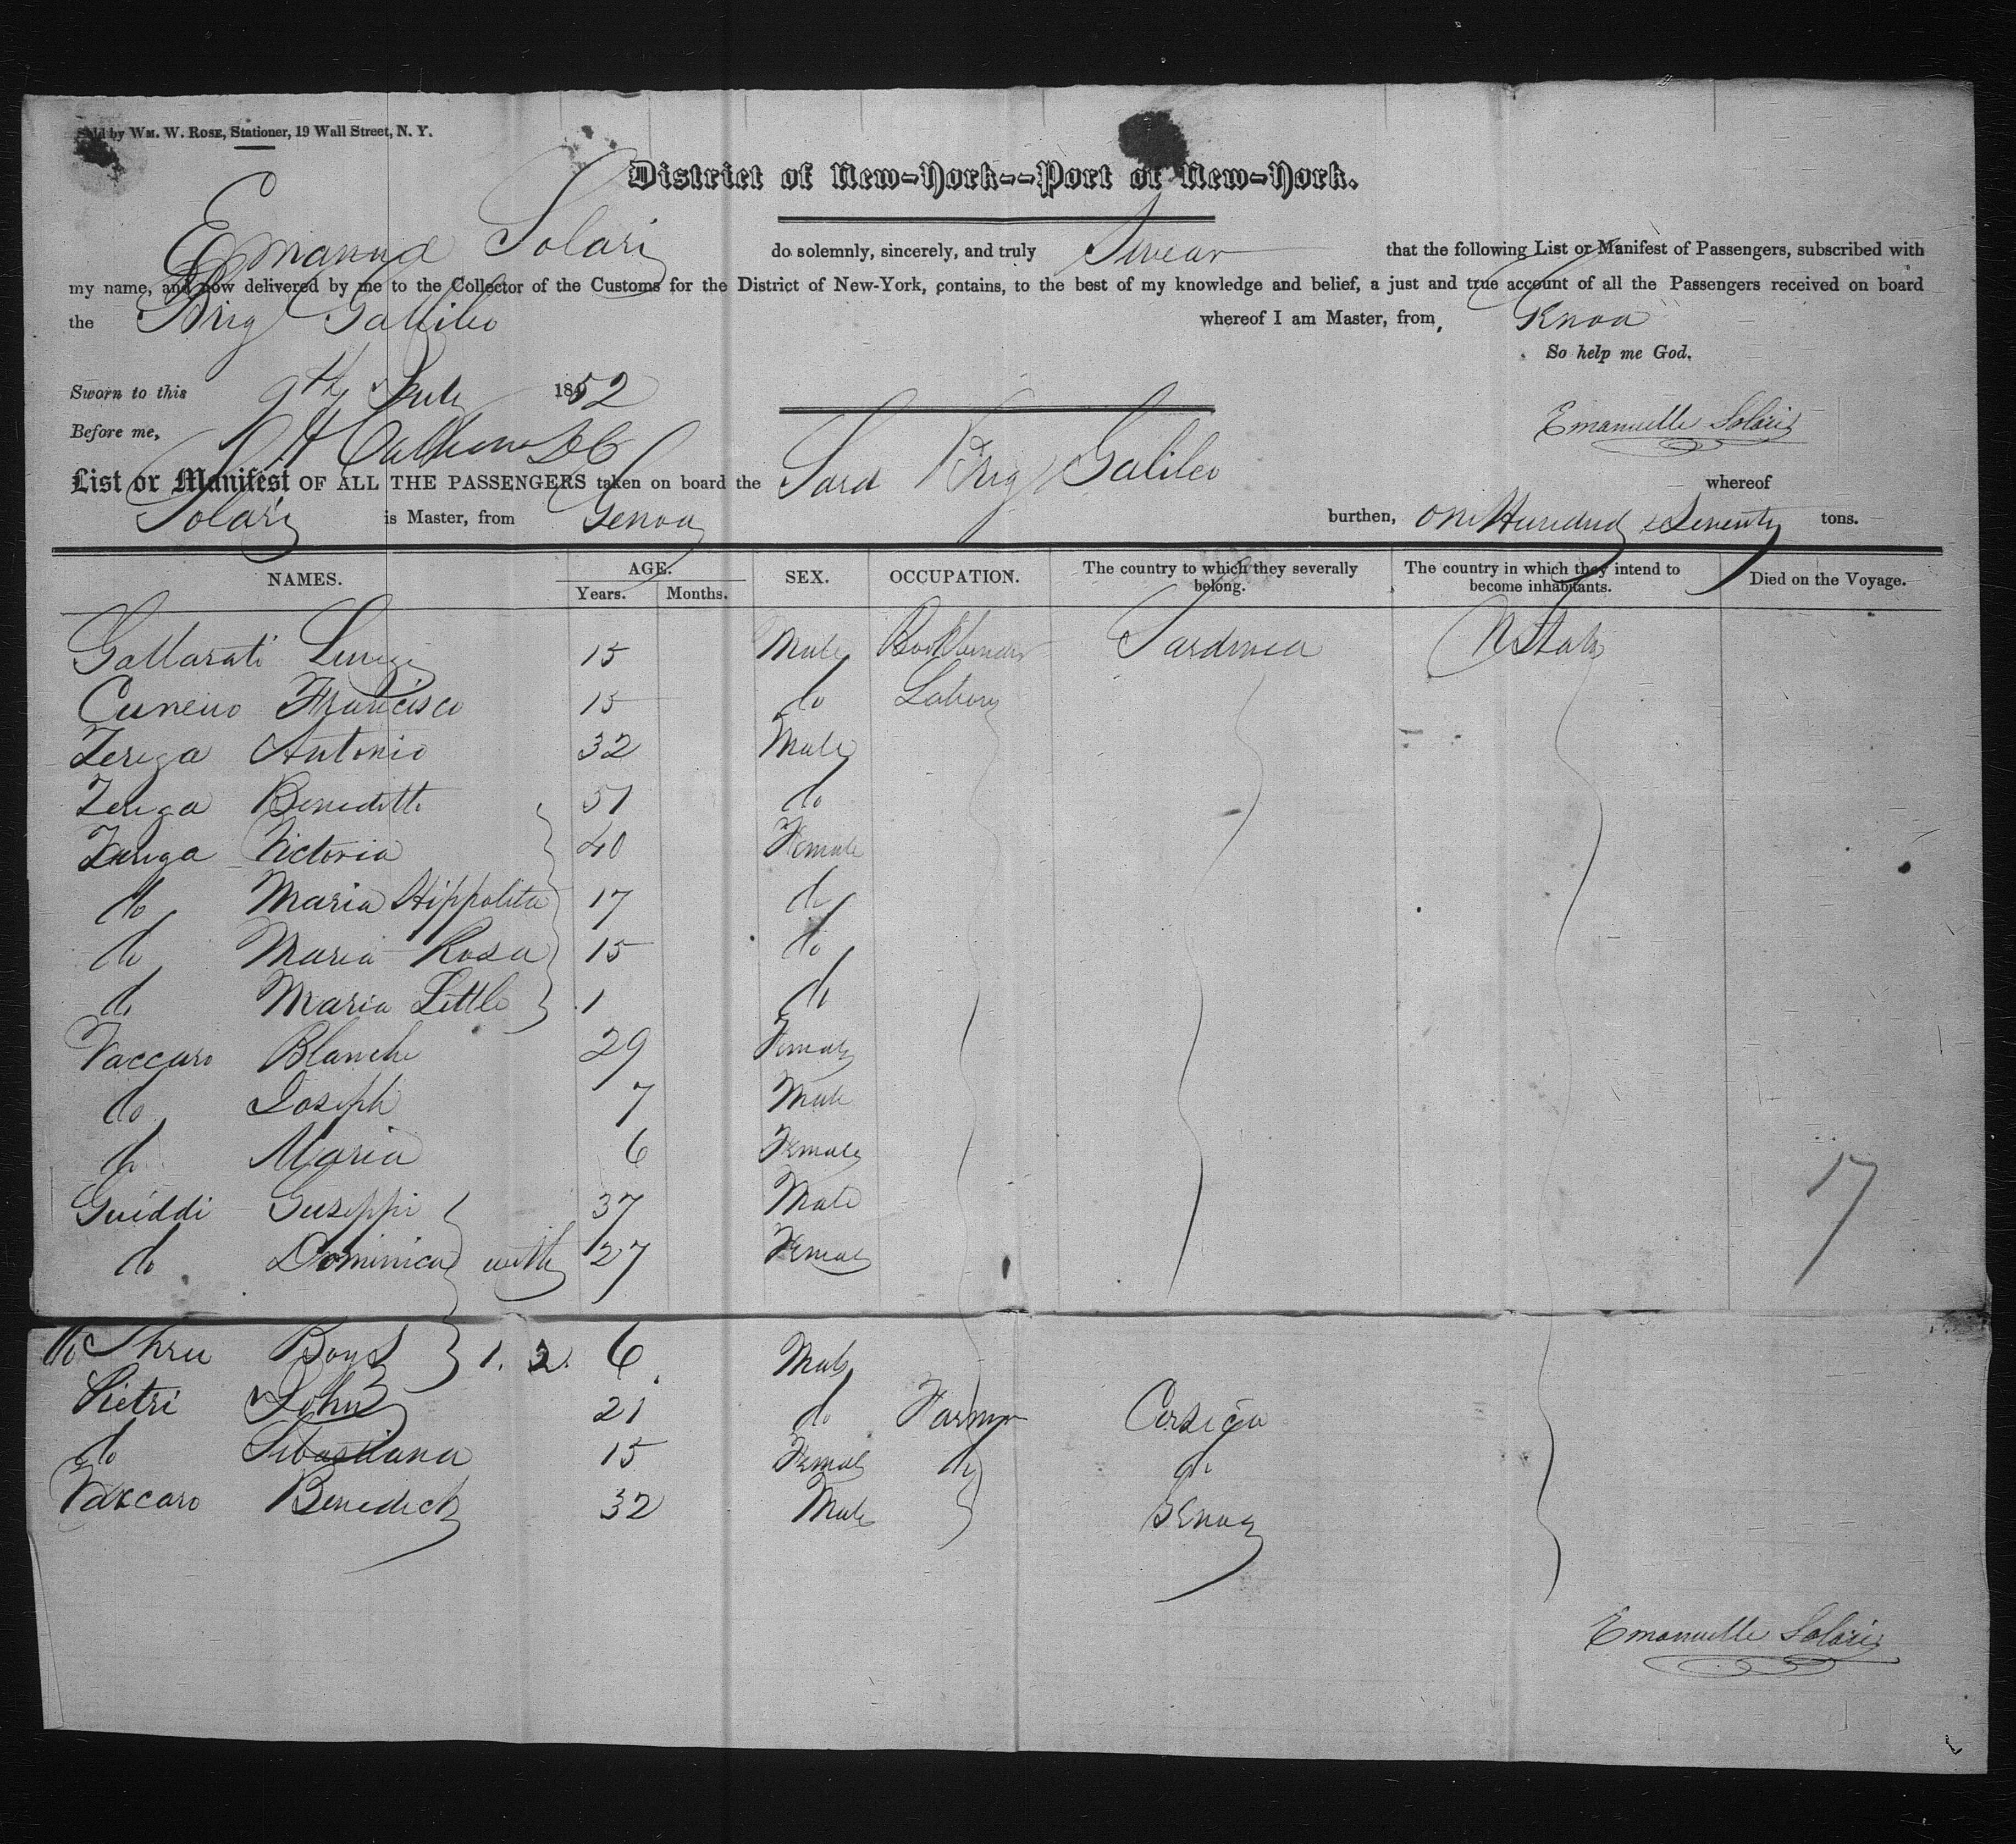 Sold by WM. W. ROSE, Stationer, 19 Wall Street, N. Y.
District of New-York--Port of New-York.
Emanuel Solari do solemnly, sincerely, and truly Swear that the following List or Manifest of Passengers, subscribed with
my name, and now delivered by me to the Collector of the Customs for the District of New-York, contains, to the best of my knowledge and belief, a just and true account of all the Passengers received on board
the Brig Gallileo whereof I am Master, from, Genoa
So help me God.
Sworn to this 9th July 1852
Before me, Emanuelle Solari
List or Manifest OF ALL THE PASSENGERS taken on board the Sard Brig Galileo whereof
Solari is Master, from Genoa burthen, One Hundred & Seventy tons.
NAMES. AGE. Years. Months. SEX. OCCUPATION. The country to which they severally belong. The country in which they intend to become inhabitants. Died on the Voyage.
Gallarati Luigi 15 Male Bookbinder Sardinia UStates
Cuneuo Francisco 15 do
Zerega Antonio 32 Male
Zerega Beneditto 51 do
Zerega Victoria 40 Female
do Maria Hippolita 17 do
do Maria Rosa 15 do
do Maria Little 1 do
Vaccaro Blanche 29 Female
do Joseph 7 Male
do Maria 6 Female
Guiddi Guseppi 37 Male
do Dominica with 27 Female
17
do Three Boys 1. 2. 6 Male
Pietri John 21 do Farmer Corsica
do Sebastiana 15 Female do do
Vaccaro Benedick 32 Male Genoa
Emanuelle Solari